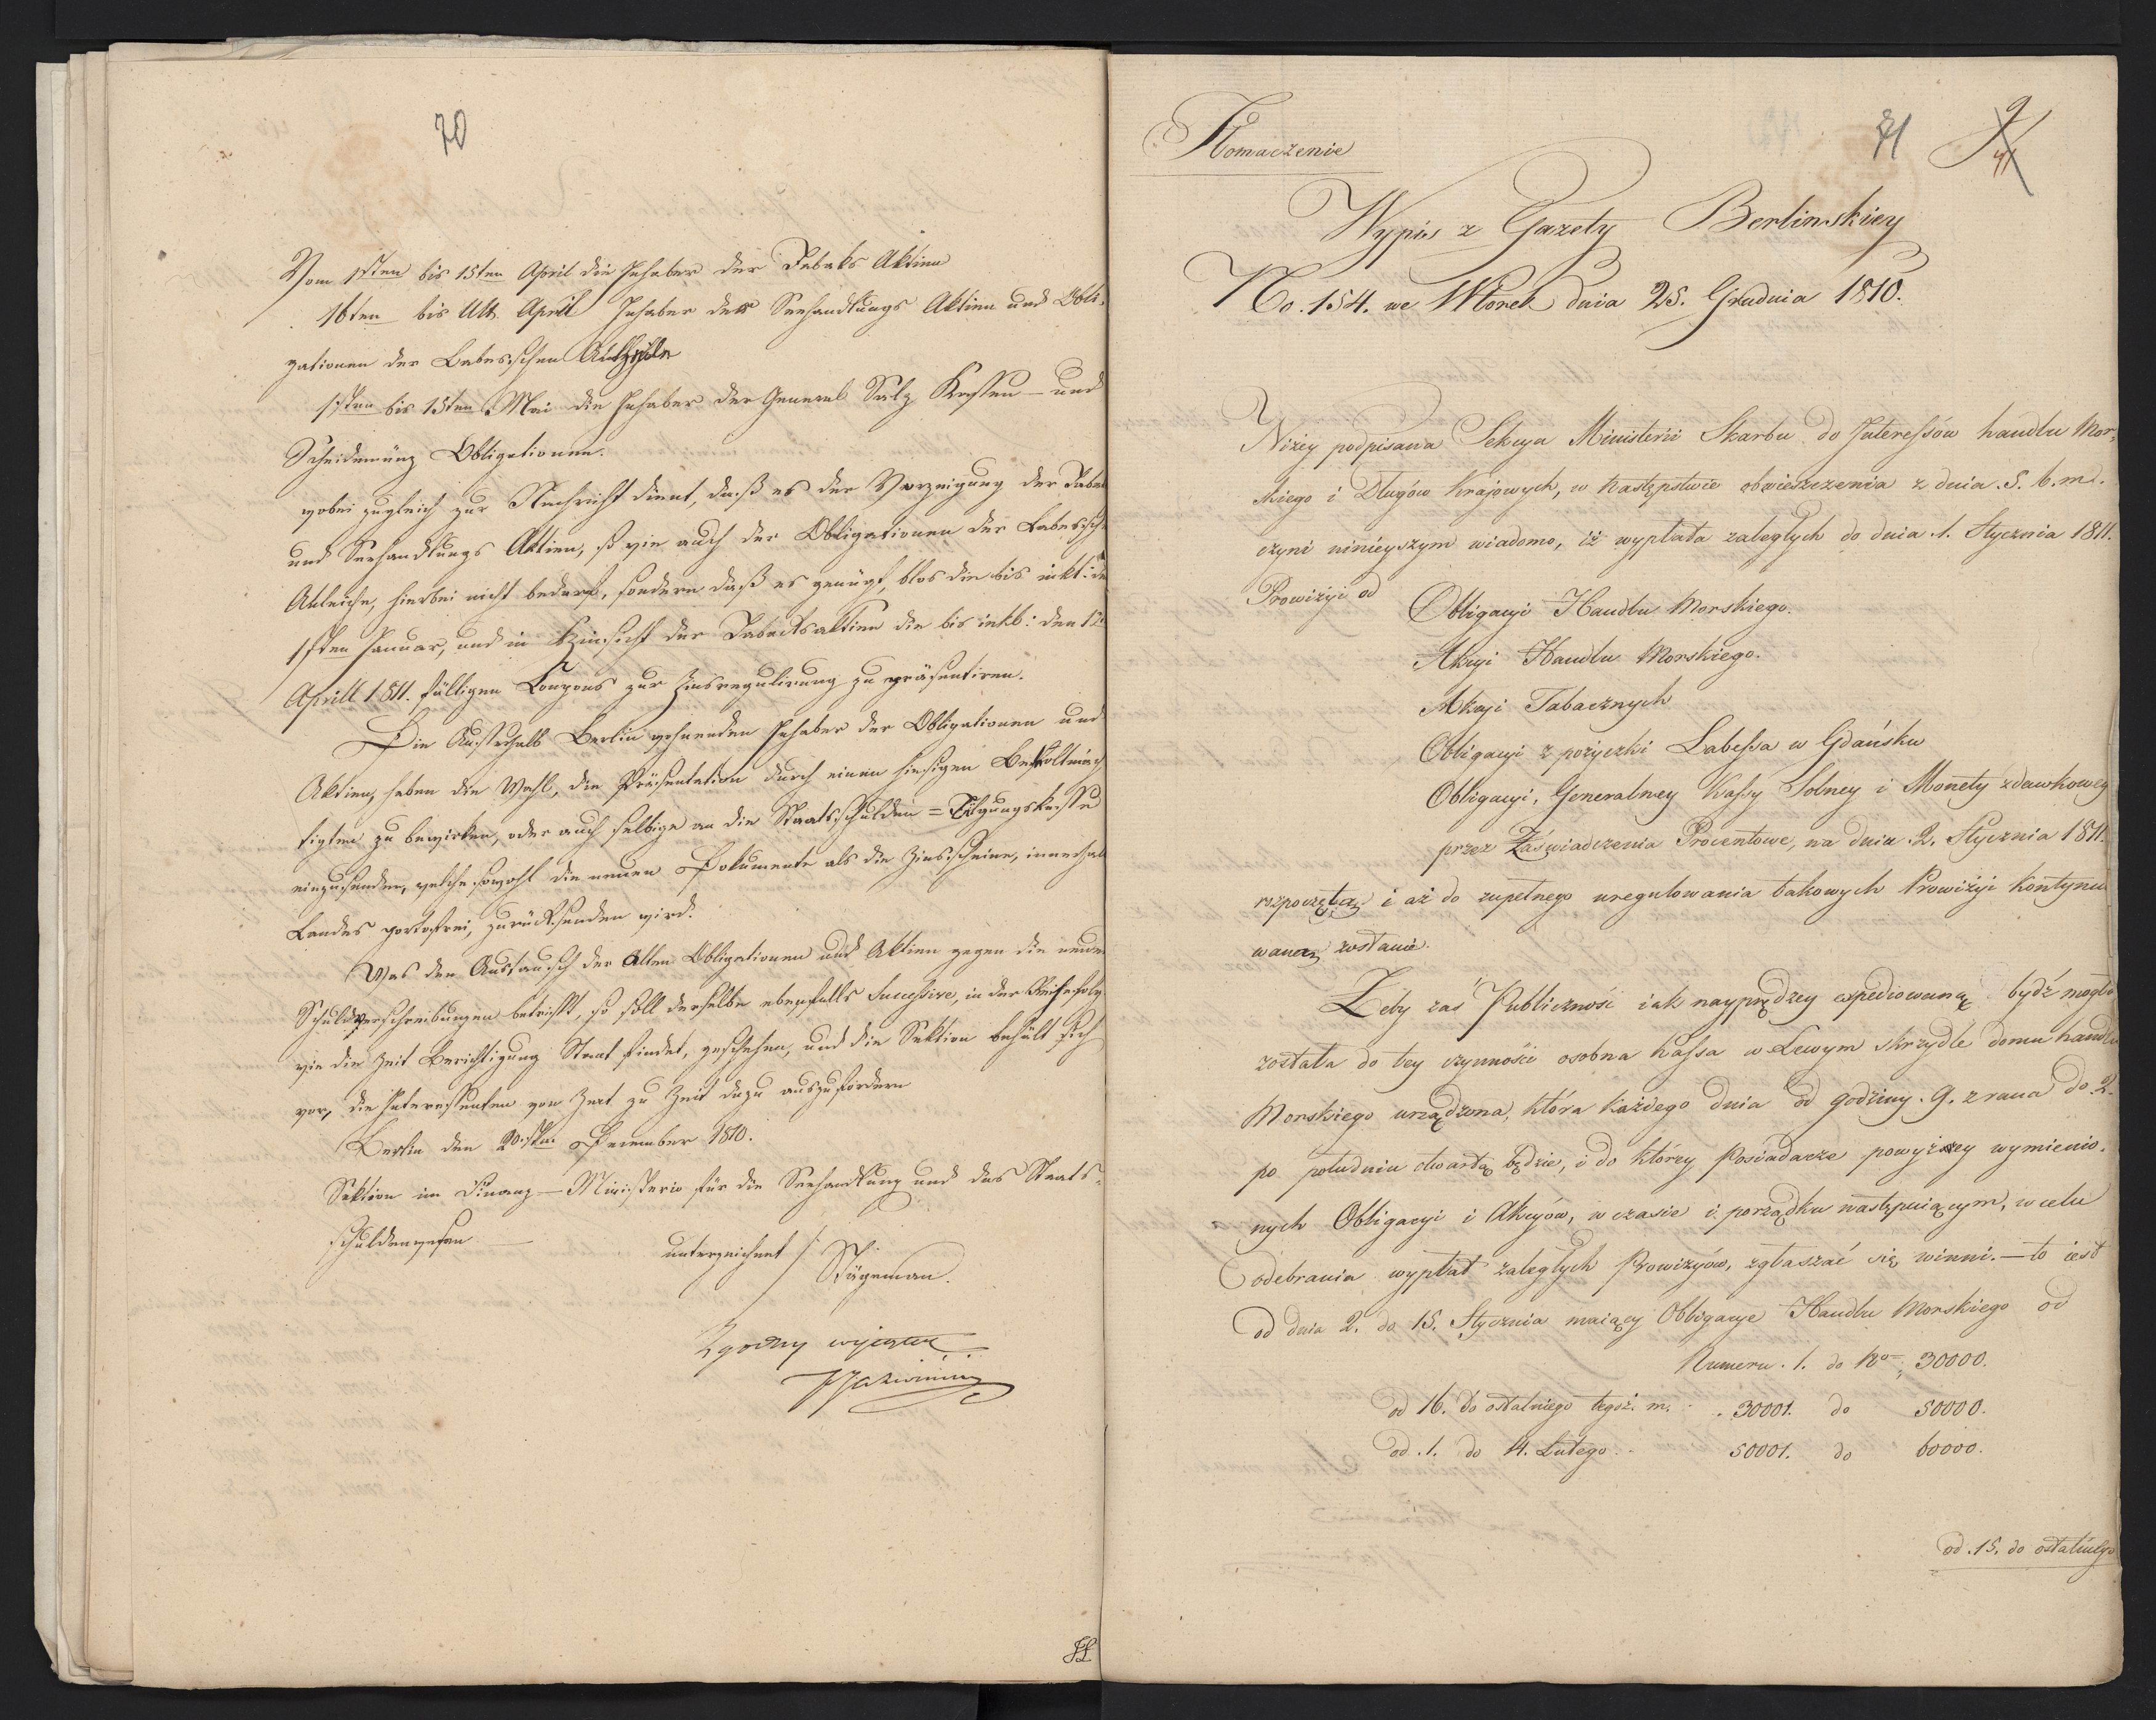 70
Vom 1sten bis 15ten April die Inhaber der Tabaks Aktien
16ten bis Ult. April Inhaber der Seehandlungs Aktien und Obli-
gationen der Labesschen Anleihe
1sten bis 15ten Mai die Inhaber der General Salz Kassen- und
Scheidemünz Obligationen.
wobei zugleich zur Nachricht dient, daß es der Vorzeigung der Tabak
und Seehandlungs Aktien, so wie auch der Obligationen der Labessch
Anleihe, hierbei nicht bedarf, sondern daß es genügt, blos die bis inkl: de
1sten Januar, und in Hinsicht der Tabacksaktien die bis inkl: den 1t
Aprill 1811. fälligen Coupons zur Zinsregulirung zu präsentiren.
Die Ausserhalb Berlin wohnenden Inhaber der Obligationen und
Aktien, haben die Wahl, die Präsentation durch einen hiesigen Bevollmäch
tigten zu bewirken, oder auch selbige an die Staatsschulden = Tilgungskasse
einzusenden, welche sowohl die neuen Dokumente als die Zinsscheine, innerhalb
Landes portofrei, zurücksenden wird.
Was den Austausch der Alten Obligationen und Aktien gegen die neuen
Schuldverschreibungen betrifft, so soll derselbe ebenfalls Successive, in der Reihefolge
wie die Zeit Berichtigung Statt findet, geschehen, und die Sektion behält sich
vor, die Interessenten von Zeit zu Zeit dazu auszufordern
Berlin den 20sten December 1810.
Sektion im Finanz-Ministerio für die Seehandlung und das Staats-
schuldenwesen
unterzeichnet /: Stägeman.
Zgodny wyciąg
71
9
41
Tłomaczenie
Wypis z Gazety Berlinskiey
No. 154. we Wtorek dnia 25. Grudnia 1810.
Niżey podpisana Sekcya Ministerii Skarbu do Interessów handlu Mor-
skiego i Długów krajowych, w następstwie obwieszczenia z dnia 5. b. m.
czyni ninieyszym wiadomo, iż wypłata zaległych do dnia 1. Stycznia 1811.
Prowizyi od
Obligacyi Handlu Morskiego.
Akcyi Handlu Morskiego.
Akcyi Tabacznych
Obligacyi z pożyczki Labessa w Gdańsku
Obligacyi, Generalney Kassy Solney i Monety zdawkowey
przez Zaświadczenia Procentowe, na dniu 2. Stycznia 1811.
rozpoczętą i aż do zupełnego uregulowania takowych Prowizyi kontynu
waną zostanie.
Żeby zaś Publiczność iak nayprędzey expediowaną bydź mogła
została do tey czynności osobna kassa w Lewym skrzydle domu handlu
Morskiego urządzona, która każdego dnia od godziny 9. z rana do 2.
po południu otwartą będzie, i do którzy Posiadacze powyższey wymienio-
nych Obligacyi i Akcyów, w czasie i porządku następuiącym, w celu
odebrania wypłat zaległych Prowizyów, zgłaszać się winni. — to iest
od dnia 2. do 15. Stycznia maiący Obligacye Handlu Morskiego od
Numeru 1. do No 30000.
od 16. do ostatniego tegoż. m. 30001. do 50000.
od 1. do 14. Lutego 50001. do 60000.
od 15. do ostatniego